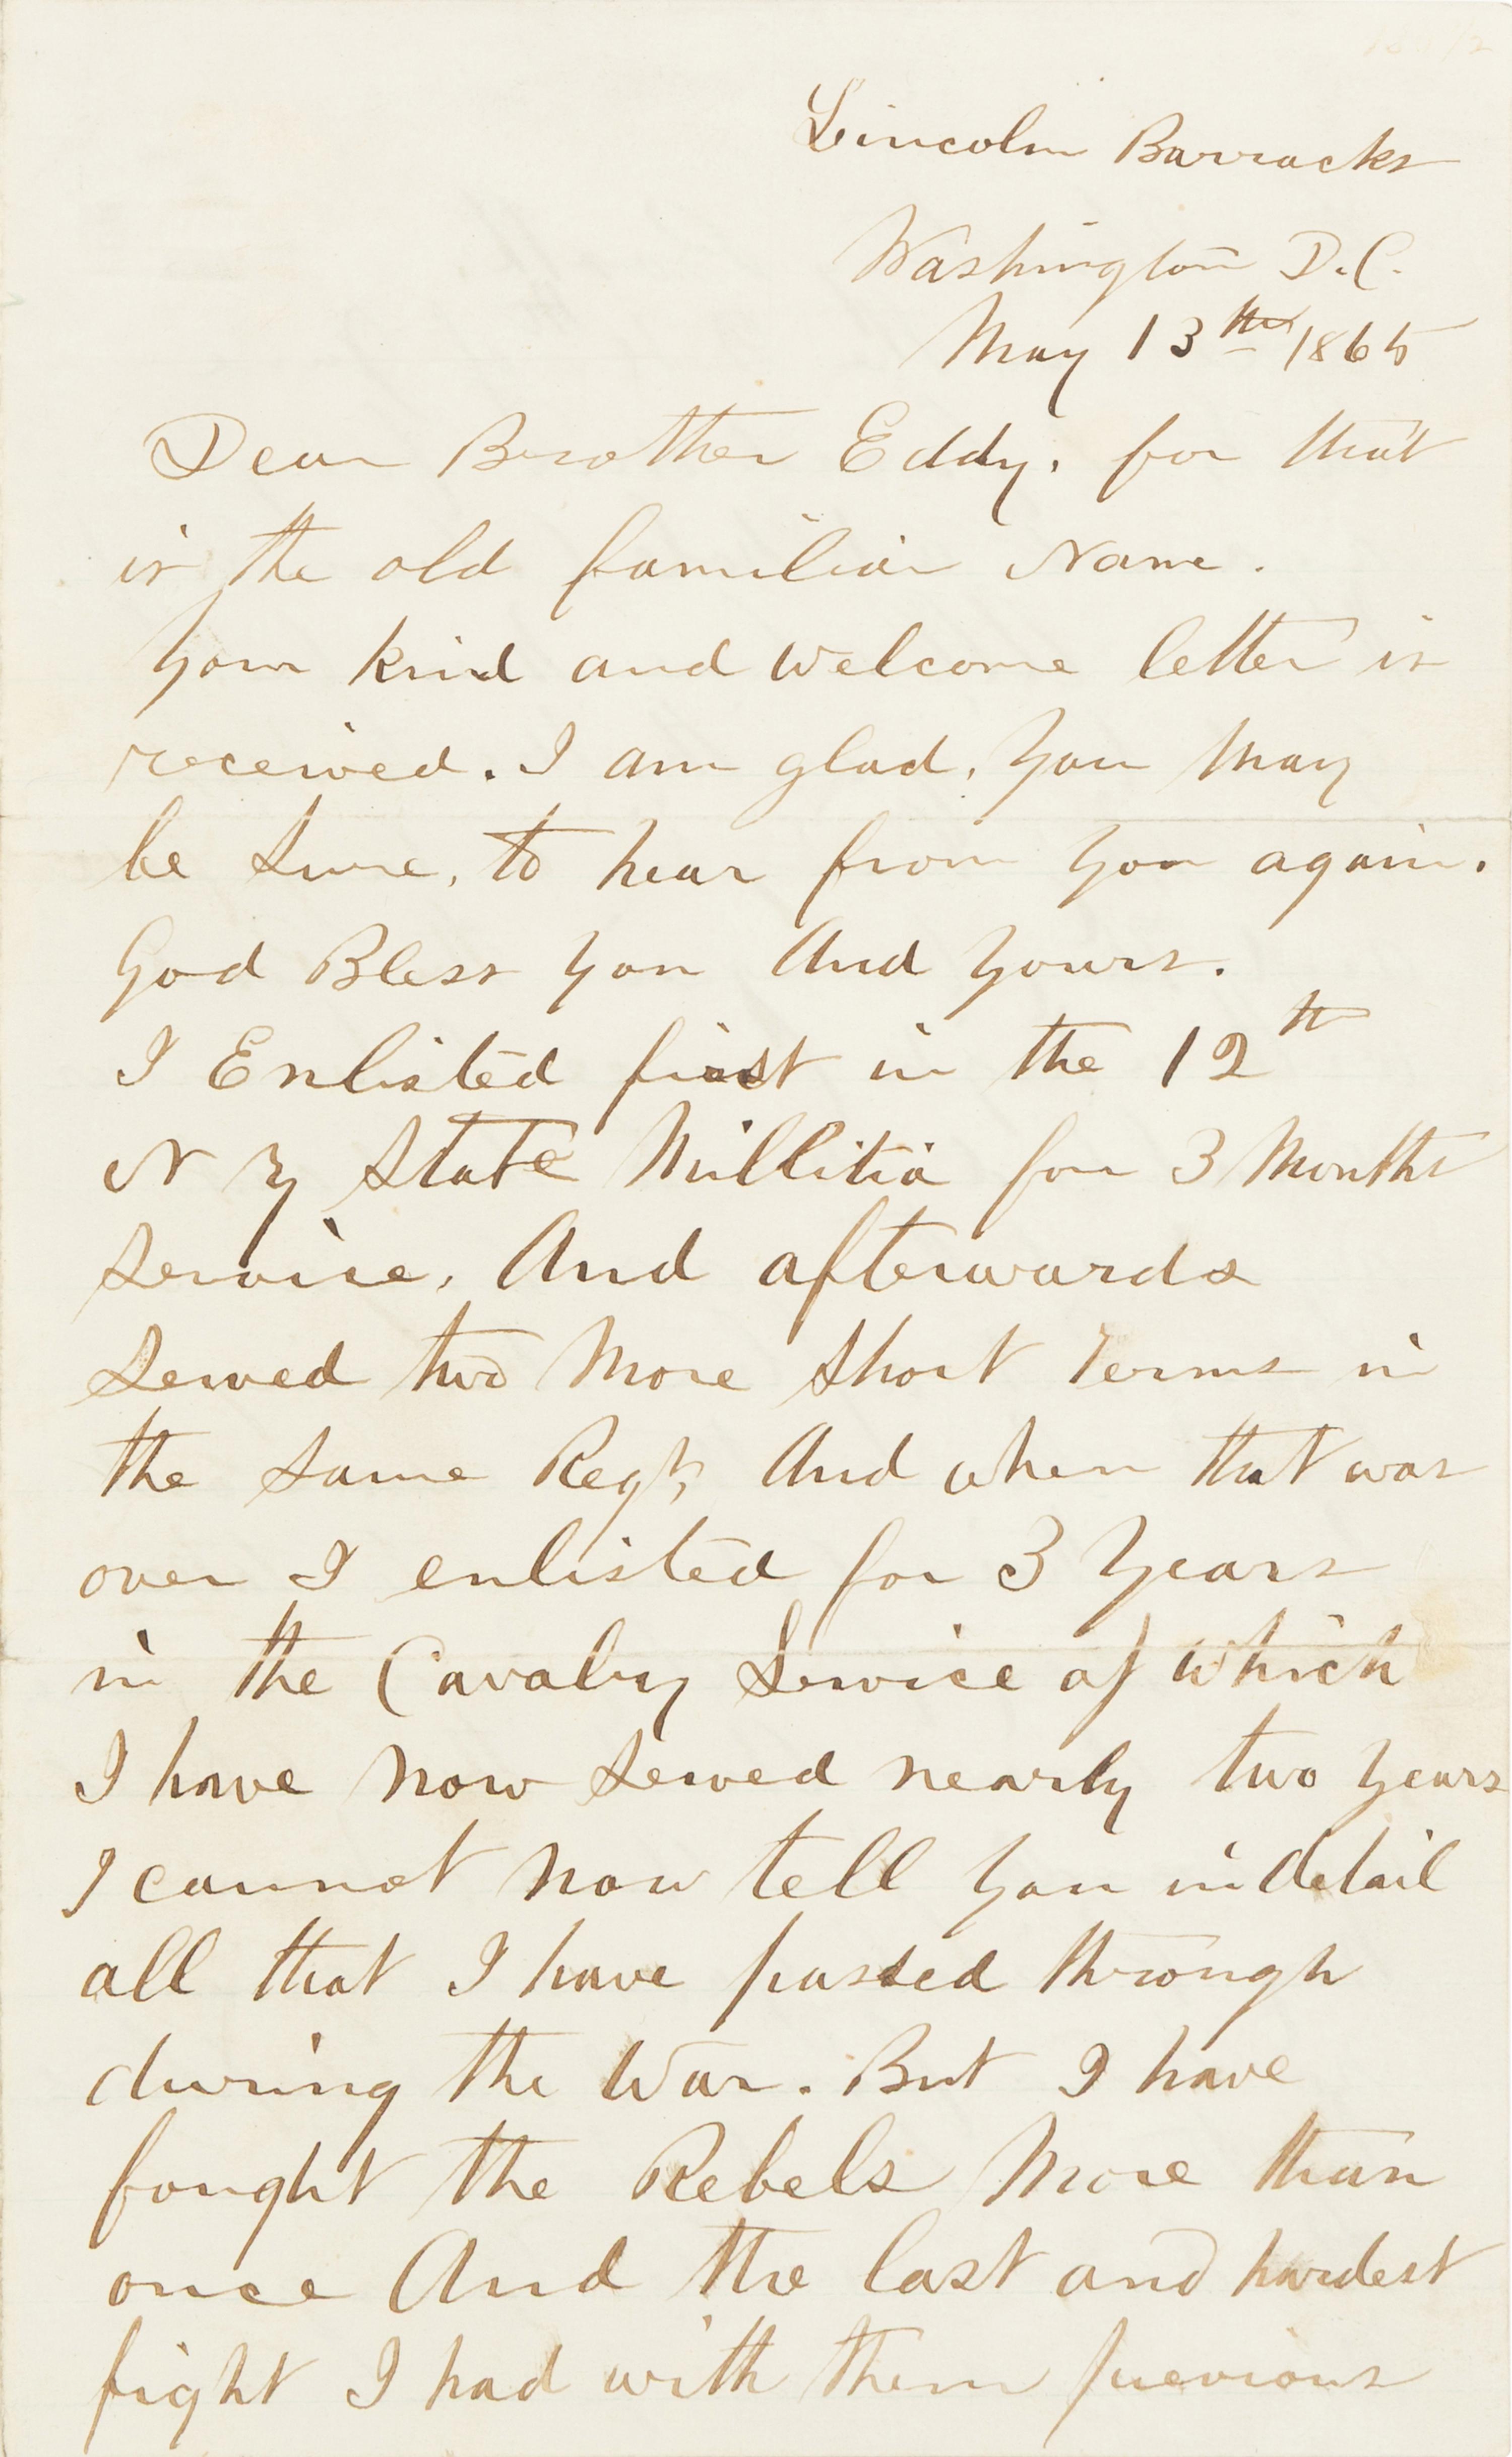 Lincoln Barracks
Washington D.C.
May 13th 1865
Dear Brother Eddy. for that
is the old familiar Name.
Your kind and welcome letter is
received. I am glad, you may
be sure, to hear from you again.
God Bless you And yours.
I Enlisted first in the 12th
N Y State Millitia for 3 Months
Service, And afterwards
Served two More short terms in
the same Regt, And when that was
over I enlisted for 3 Years
in the Cavalry Service of which
I have now served nearly two years
I cannot now tell you in detail
all that I have passed through
during the War. But I have
fought the Rebels More than
once And the last and hardest
fight I had with them previous